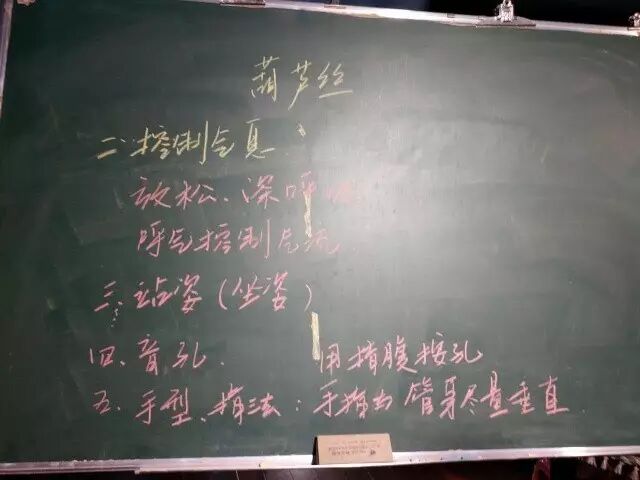 葫芦丝
二、控制气息:
放松、深呼吸
呼气控制气流
三、站姿(坐姿)
四、音孔. 用指腹按孔
五、手型、指法:手指与管身尽量垂直